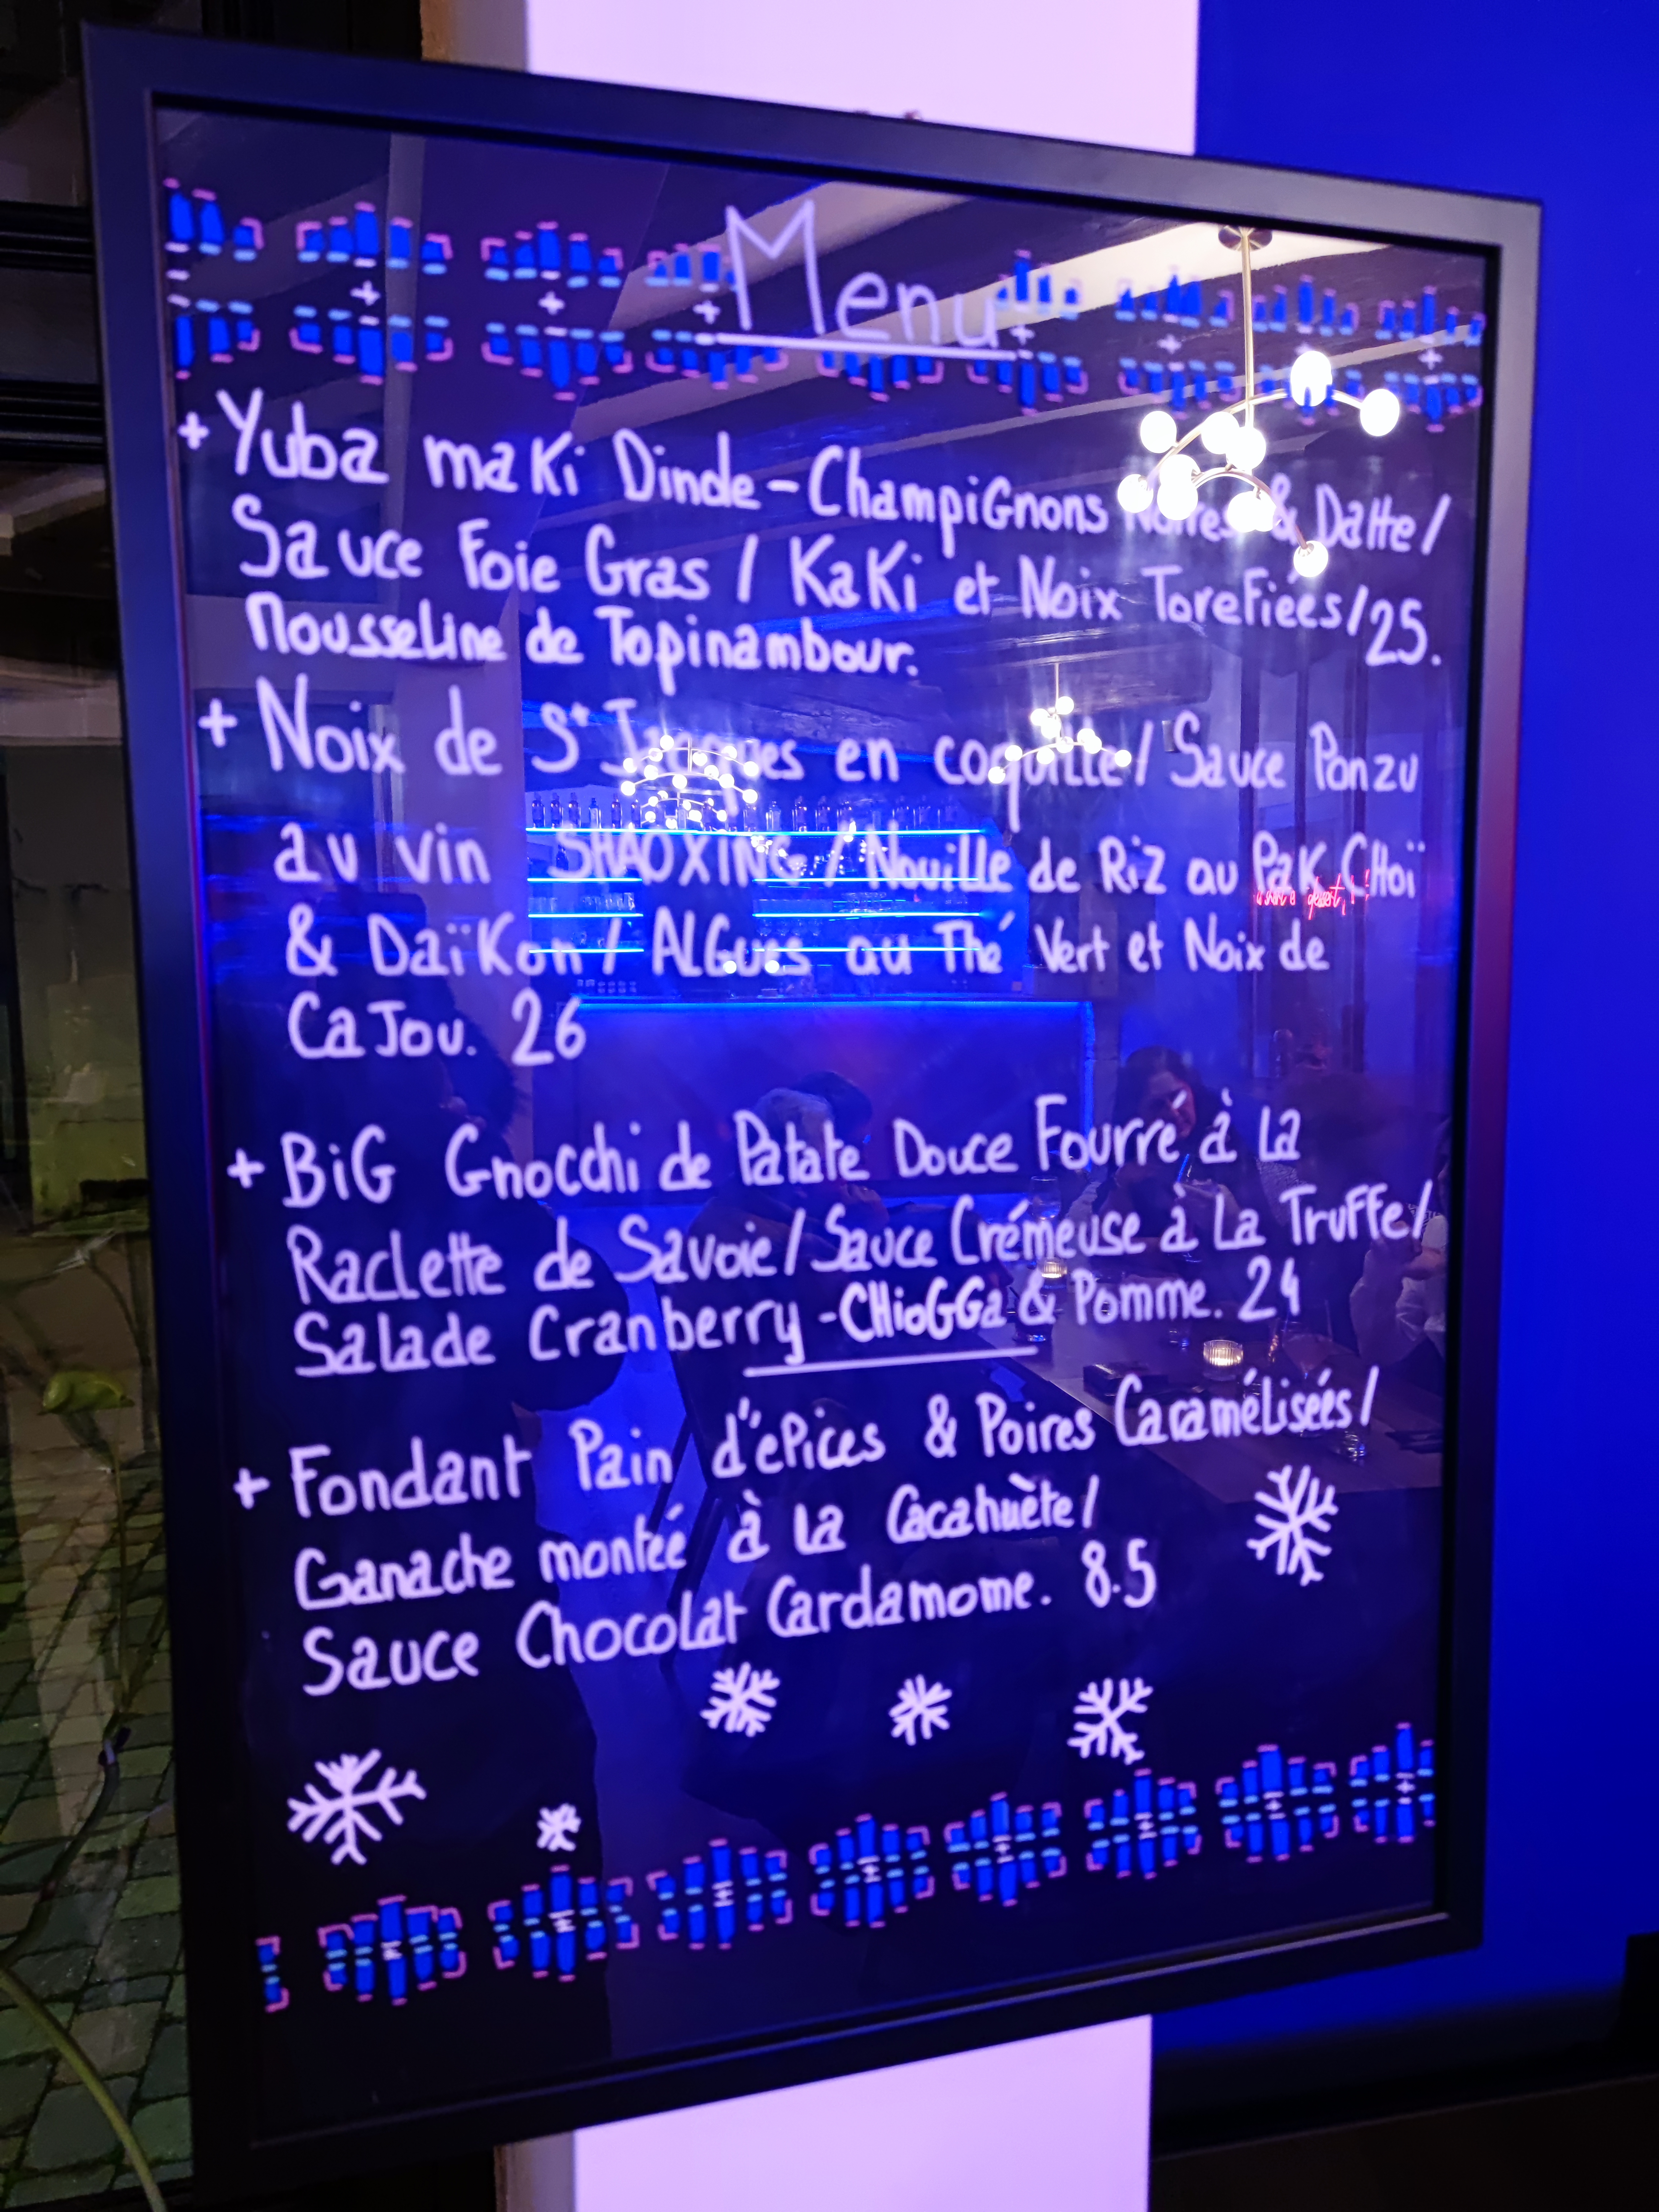 Menu
+ Yuba maki Dinde-Champignons Noires & Datte/
Sauce Foie Gras / Kaki et Noix Torefiées/25.
Mousseline de Topinambour.
+ Noix de St Jacques en coquille/ Sauce Ponzu
au vin SHAOXING / Nouille de Riz au Pak CHoï
& Daïkon / ALGues au Thé Vert et Noix de
CaJou. 26
+ BiG Gnocchi de Patate Douce Fourré à La
Raclette de Savoie/Sauce Crémeuse à La Truffe/
Salade Cranberry-CHioGGa & Pomme. 24
+ Fondant Pain d'épices & Poires Caramélisées/
Ganache montée à La Cacahuète/
Sauce Chocolat Cardamome. 8.5